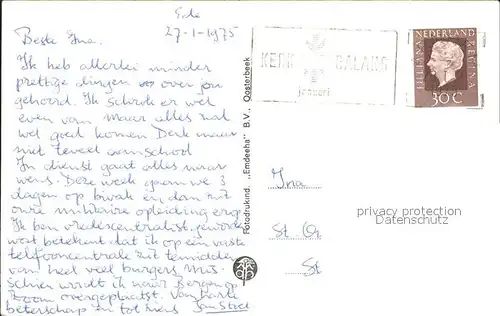 Ede
27-1-1975
Beste Ina.
Ik heb allerlei minder
prettige dingen over jou
gehoord. Ik schrok er wel
even van maar alles zal
wel goed komen Denk maar
niet teveel aan school
In dienst gaat alles naar
wens. Deze week gaan we 3
dagen op bivak en dan zit
onze militaire opleiding erop
Ik ben geworden
wat betekent dat ik op een vaste
telefooncentrale zit temidden
van heel veel burgers. Mis-
schien wordt ik naar Bergen op
Zoom overgeplaatst. Van harte
beterschap en tot ziens Jan
Fotodrukind. „Emdeeha” B.V., Oosterbeek
KERK BALANS
januari
NEDERLAND
JULIANA REGINA
30 C
Ina
St. Or
St
privacy protection
Datenschutz